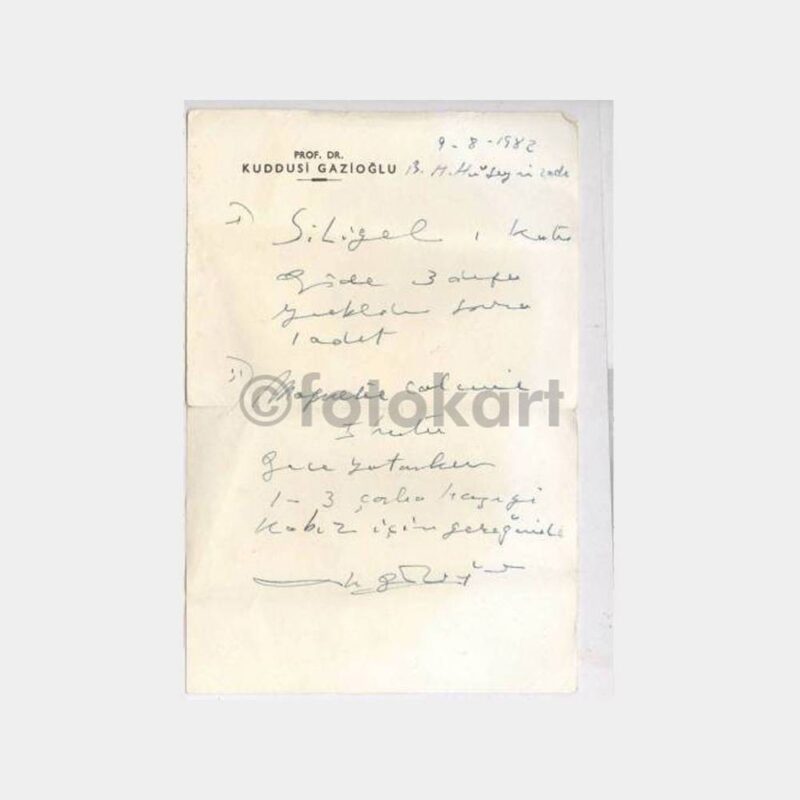 9-8-1982
PROF. DR.
KUDDUSİ GAZİOĞLU B. M. Hüseyin zade
I) Siligel 1 Kutu
Günde 3 defa
yemekten sonra
1 adet
II) Magnesie calcinée
©fotokart
1 kutu
Gece yatarken
1-3 çorba kaşığı
Kabız için gereğinde